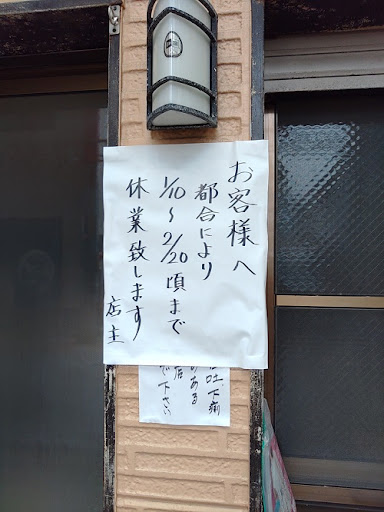 お客様へ
都合により
1/10〜2/20頃まで
休業致します
店主
吐下痢
のある
店
で下さい